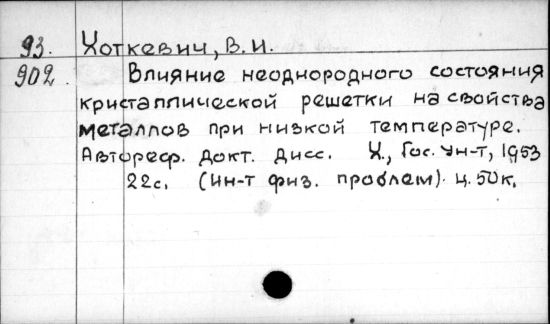 93. Хоткевич, В.И.
902 Влияние неоднородного состояния
кристаллической решетки на свойства
металлов при низкой температуре.
Автореф. докт. дисс. Х., Гос. ун-т, 1953
22с. (Ин-т физ. проблем). Ц. 50к.